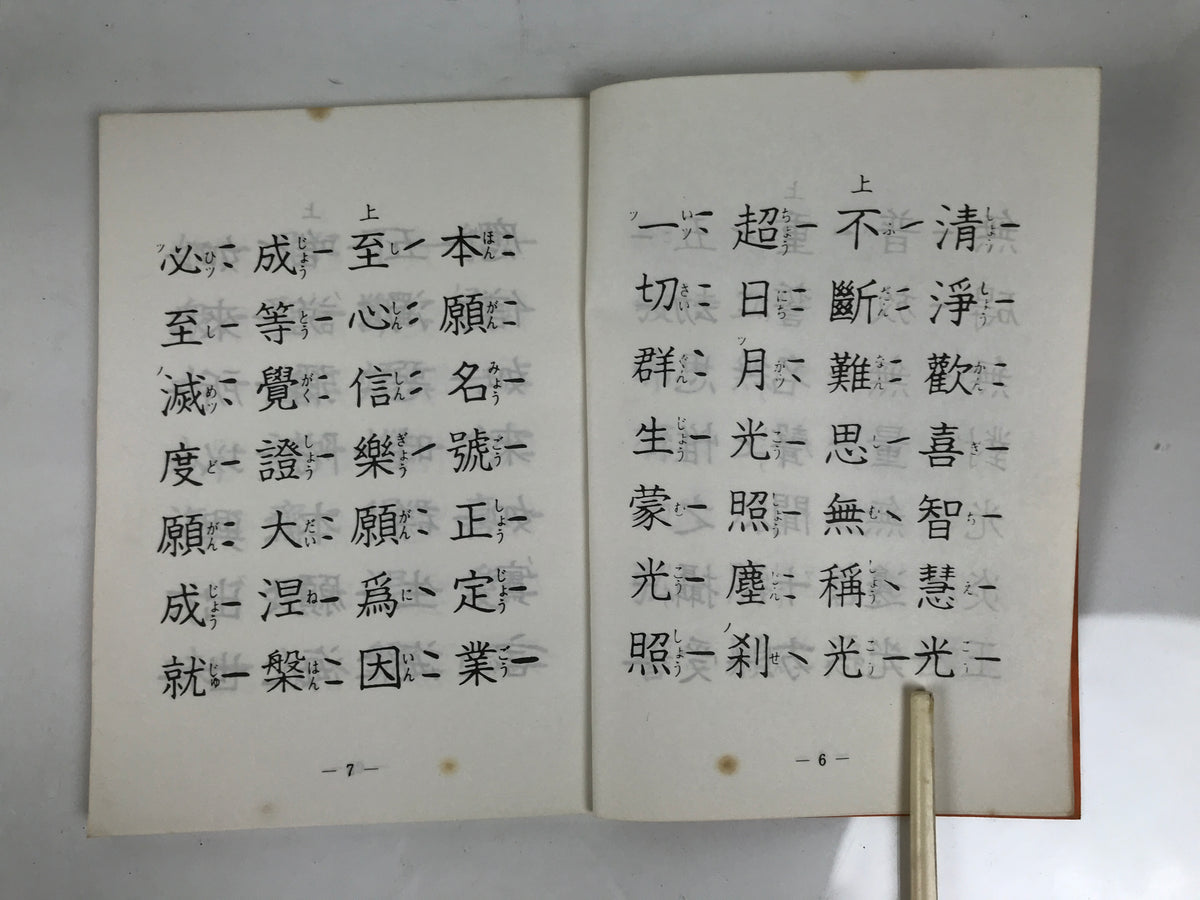 清淨歡喜智慧光
しょう しょう かん ぎ ち え こう
上
不斷難思無稱光
ふ だん なん し む しょう こう
超日月光照塵刹
ちょう にち ツ がッ こう しょう じん ノ せ
一切群生蒙光照
ツ いッ さい ぐん じょう む こう しょう
— 6 —
本願名號正定業
ほん がん みょう ごう しょう じょう ごう
上
至心信樂願爲因
し しん しん ぎょう がん に いん
成等覺證大涅槃
じょう とう がく しょう だい ね はん
必至滅度願成就
ツ ひッ し ノ めッ ど がん じょう じゅ
— 7 —